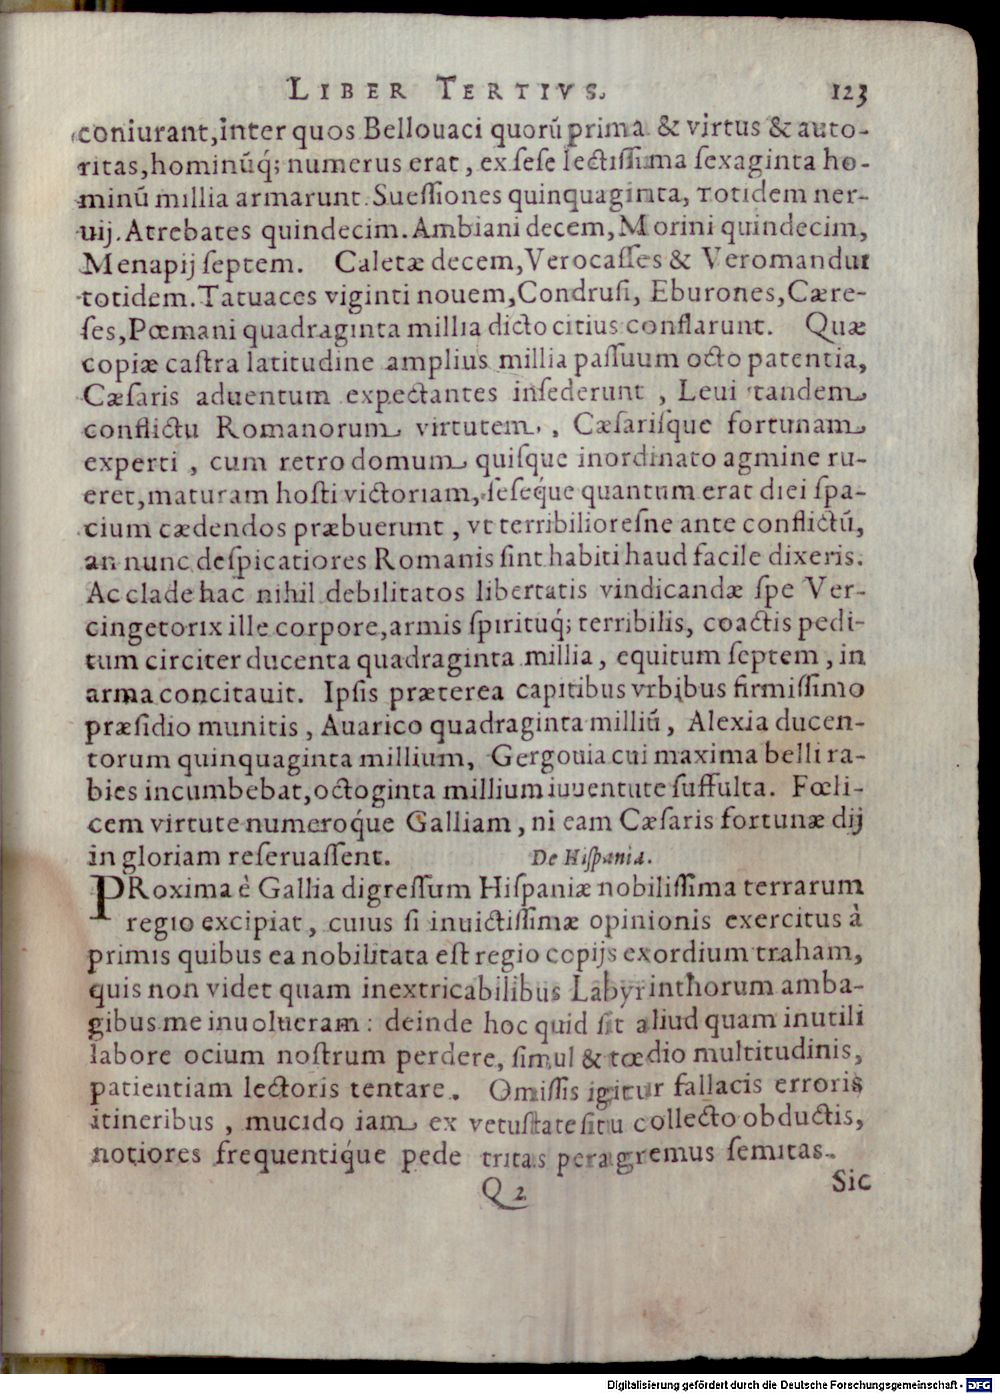 LIBER TERTIVS. 123
coniurant, inter quos Bellouaci quorũ prima & virtus & auto-
ritas, hominũq́; numerus erat, ex sese lectissima sexaginta ho-
minũ millia armarunt. Suessiones quinquaginta, totidem ner-
uij. Atrebates quindecim. Ambiani decem, Morini quindecim,
Menapij septem. Caletæ decem, Verocasses & Veromandui
totidem. Tatuaces viginti nouem, Condrusi, Eburones, Cære-
ses, Pœmani quadraginta millia dicto citius conflarunt. Quæ
copiæ castra latitudine amplius millia passuum octo patentia,
Cæsaris aduentum expectantes insederunt, Leui tandem
conflictu Romanorum virtutem, Cæsarisque fortunam
experti, cum retro domum quisque inordinato agmine ru-
eret, maturam hosti victoriam, seseq́ue quantum erat diei spa-
cium cædendos præbuerunt, vt terribilioresne ante conflictũ,
an nunc despicatiores Romanis sint habiti haud facile dixeris.
Ac clade hac nihil debilitatos libertatis vindicandæ spe Ver-
cingetorix ille corpore, armis spirituq́; terribilis, coactis pedi-
tum circiter ducenta quadraginta millia, equitum septem, in
arma concitauit. Ipsis præterea capitibus vrbibus firmissimo
præsidio munitis, Auarico quadraginta milliũ, Alexia ducen-
torum quinquaginta millium, Gergouia cui maxima belli ra-
bies incumbebat, octoginta millium iuuentute suffulta. Fœli-
cem virtute numeroq́ue Galliam, ni eam Cæsaris fortunæ dij
in gloriam reseruassent. De Hispania.
PRoxima è Gallia digressum Hispaniæ nobilissima terrarum
regio excipiat, cuius si inuictissimæ opinionis exercitus à
primis quibus ea nobilitata est regio copijs exordium traham,
quis non videt quam inextricabilibus Labyrinthorum amba-
gibus me inuolueram: deinde hoc quid sit aliud quam inutili
labore ocium nostrum perdere, simul & tœdio multitudinis,
patientiam lectoris tentare. Omissis igitur fallacis erroris
itineribus, mucido iam ex vetustate situ collecto obductis,
notiores frequentiq́ue pede tritas peragremus semitas.
Q 2 Sic
Digitalisierung gefördert durch die Deutsche Forschungsgemeinschaft - DFG